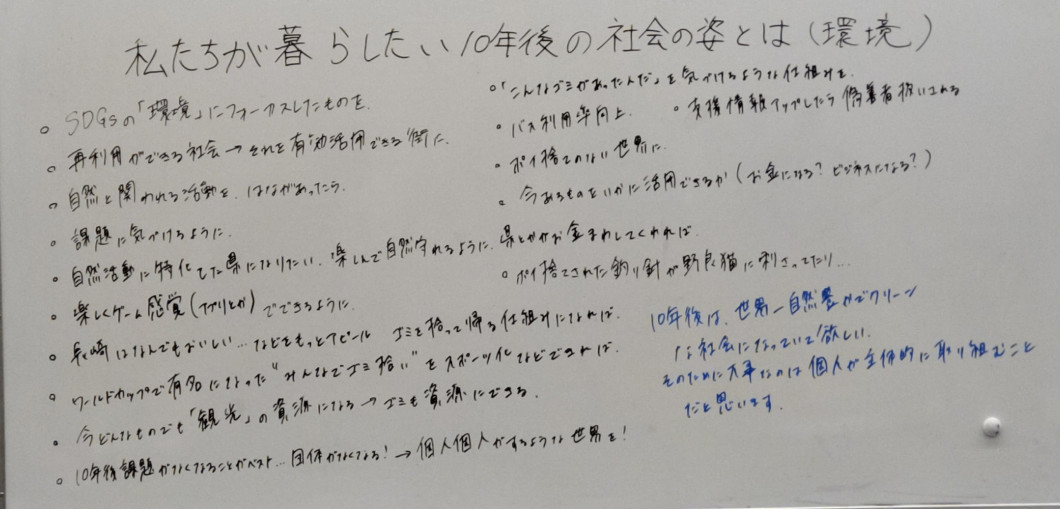 私たちが暮らしたい10年後の社会の姿とは（環境）
○ SDGsの「環境」にフォーカスしたものを.
○ 再利用ができる社会→それを有効活用できる街に.
○ 自然と関われる活動を.はながあったら.
○ 課題に気づけるように.
○ 自然活動に特化した県になりたい.楽しんで自然守れるように.県とかがお金まわしてくれれば.
○ 楽しくゲーム感覚(アプリとか)でできるように.
○ 長崎はなんでもおいしい...などをもっとアピール ゴミを拾って帰る仕組みになれば.
○ ワールドカップで有名になった"みんなでゴミ拾い"をスポーツ化などできれば.
○ 今どんなものでも「観光」の資源になる→ゴミも資源にできる.
○ 10年後課題がなくなることがベスト...団体がなくなる!→個人個人がするような世界を!
○「こんなゴミがあったんだ」を気づけるような仕組みを.
○ バス利用率向上.
○ 支援情報アップしたら偽善者扱いされる
○ ポイ捨てのない世界に.
○ 今あるものをいかに活用できるか(お金になる?ビジネスになる?)
○ ポイ捨てされた釣り針が野良猫に刺さってたり...
10年後は、世界一自然豊かでクリーン
な社会になっていて欲しい.
そのために大事なのは個人が主体的に取り組むこと
だと思います.